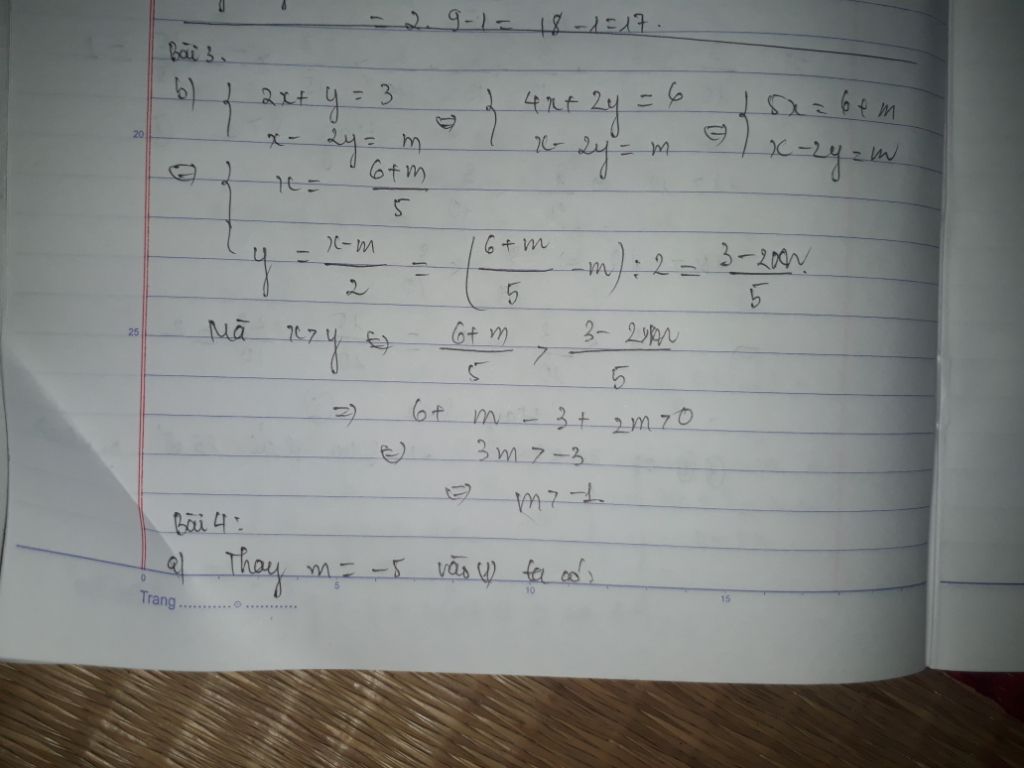 = 2. 9-1 = 18 - 1 = 17.
Bài 3.
b) { 2x + y = 3 ⇔ { 4x + 2y = 6 ⇔ { 5x = 6 + m
x - 2y = m x - 2y = m x - 2y = m
20
⇔ { x = (6+m)/5
y = (x-m)/2 = ((6+m)/5 - m) : 2 = (3-2m)/5
25
Mà x > y ⇔ (6+m)/5 > (3-2m)/5
⇒ 6 + m - 3 + 2m > 0
⇔ 3m > -3
⇔ m > -1
Bài 4:
a) Thay m = -5 vào (1) ta có:
0 5 10 15
Trang